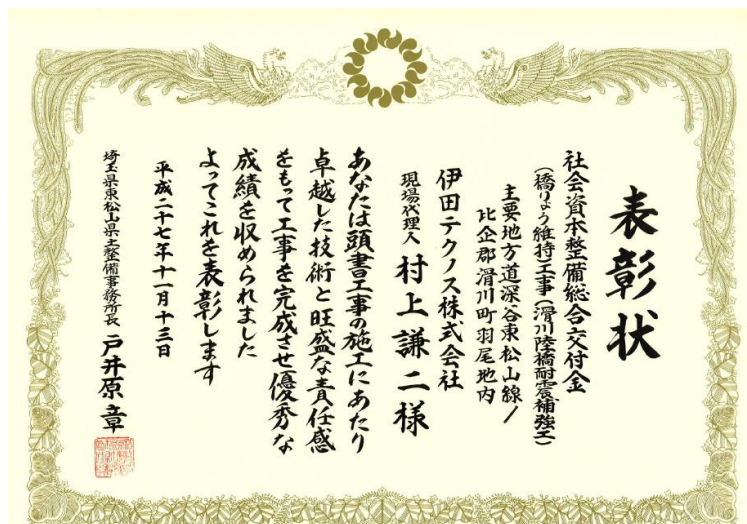 表彰状
社会資本整備総合交付金
(橋りょう維持工事(滑川陸橋耐震補強工)
主要地方道深谷東松山線/
比企郡滑川町羽尾地内
伊田テクノス株式会社
現場代理人 村上謙二様
あなたは頭書工事の施工にあたり
卓越した技術と旺盛な責任感
をもって工事を完成させ優秀な
成績を収められました
よってこれを表彰します
平成二十七年十一月十三日
埼玉県東松山県土整備事務所長 戸井原章